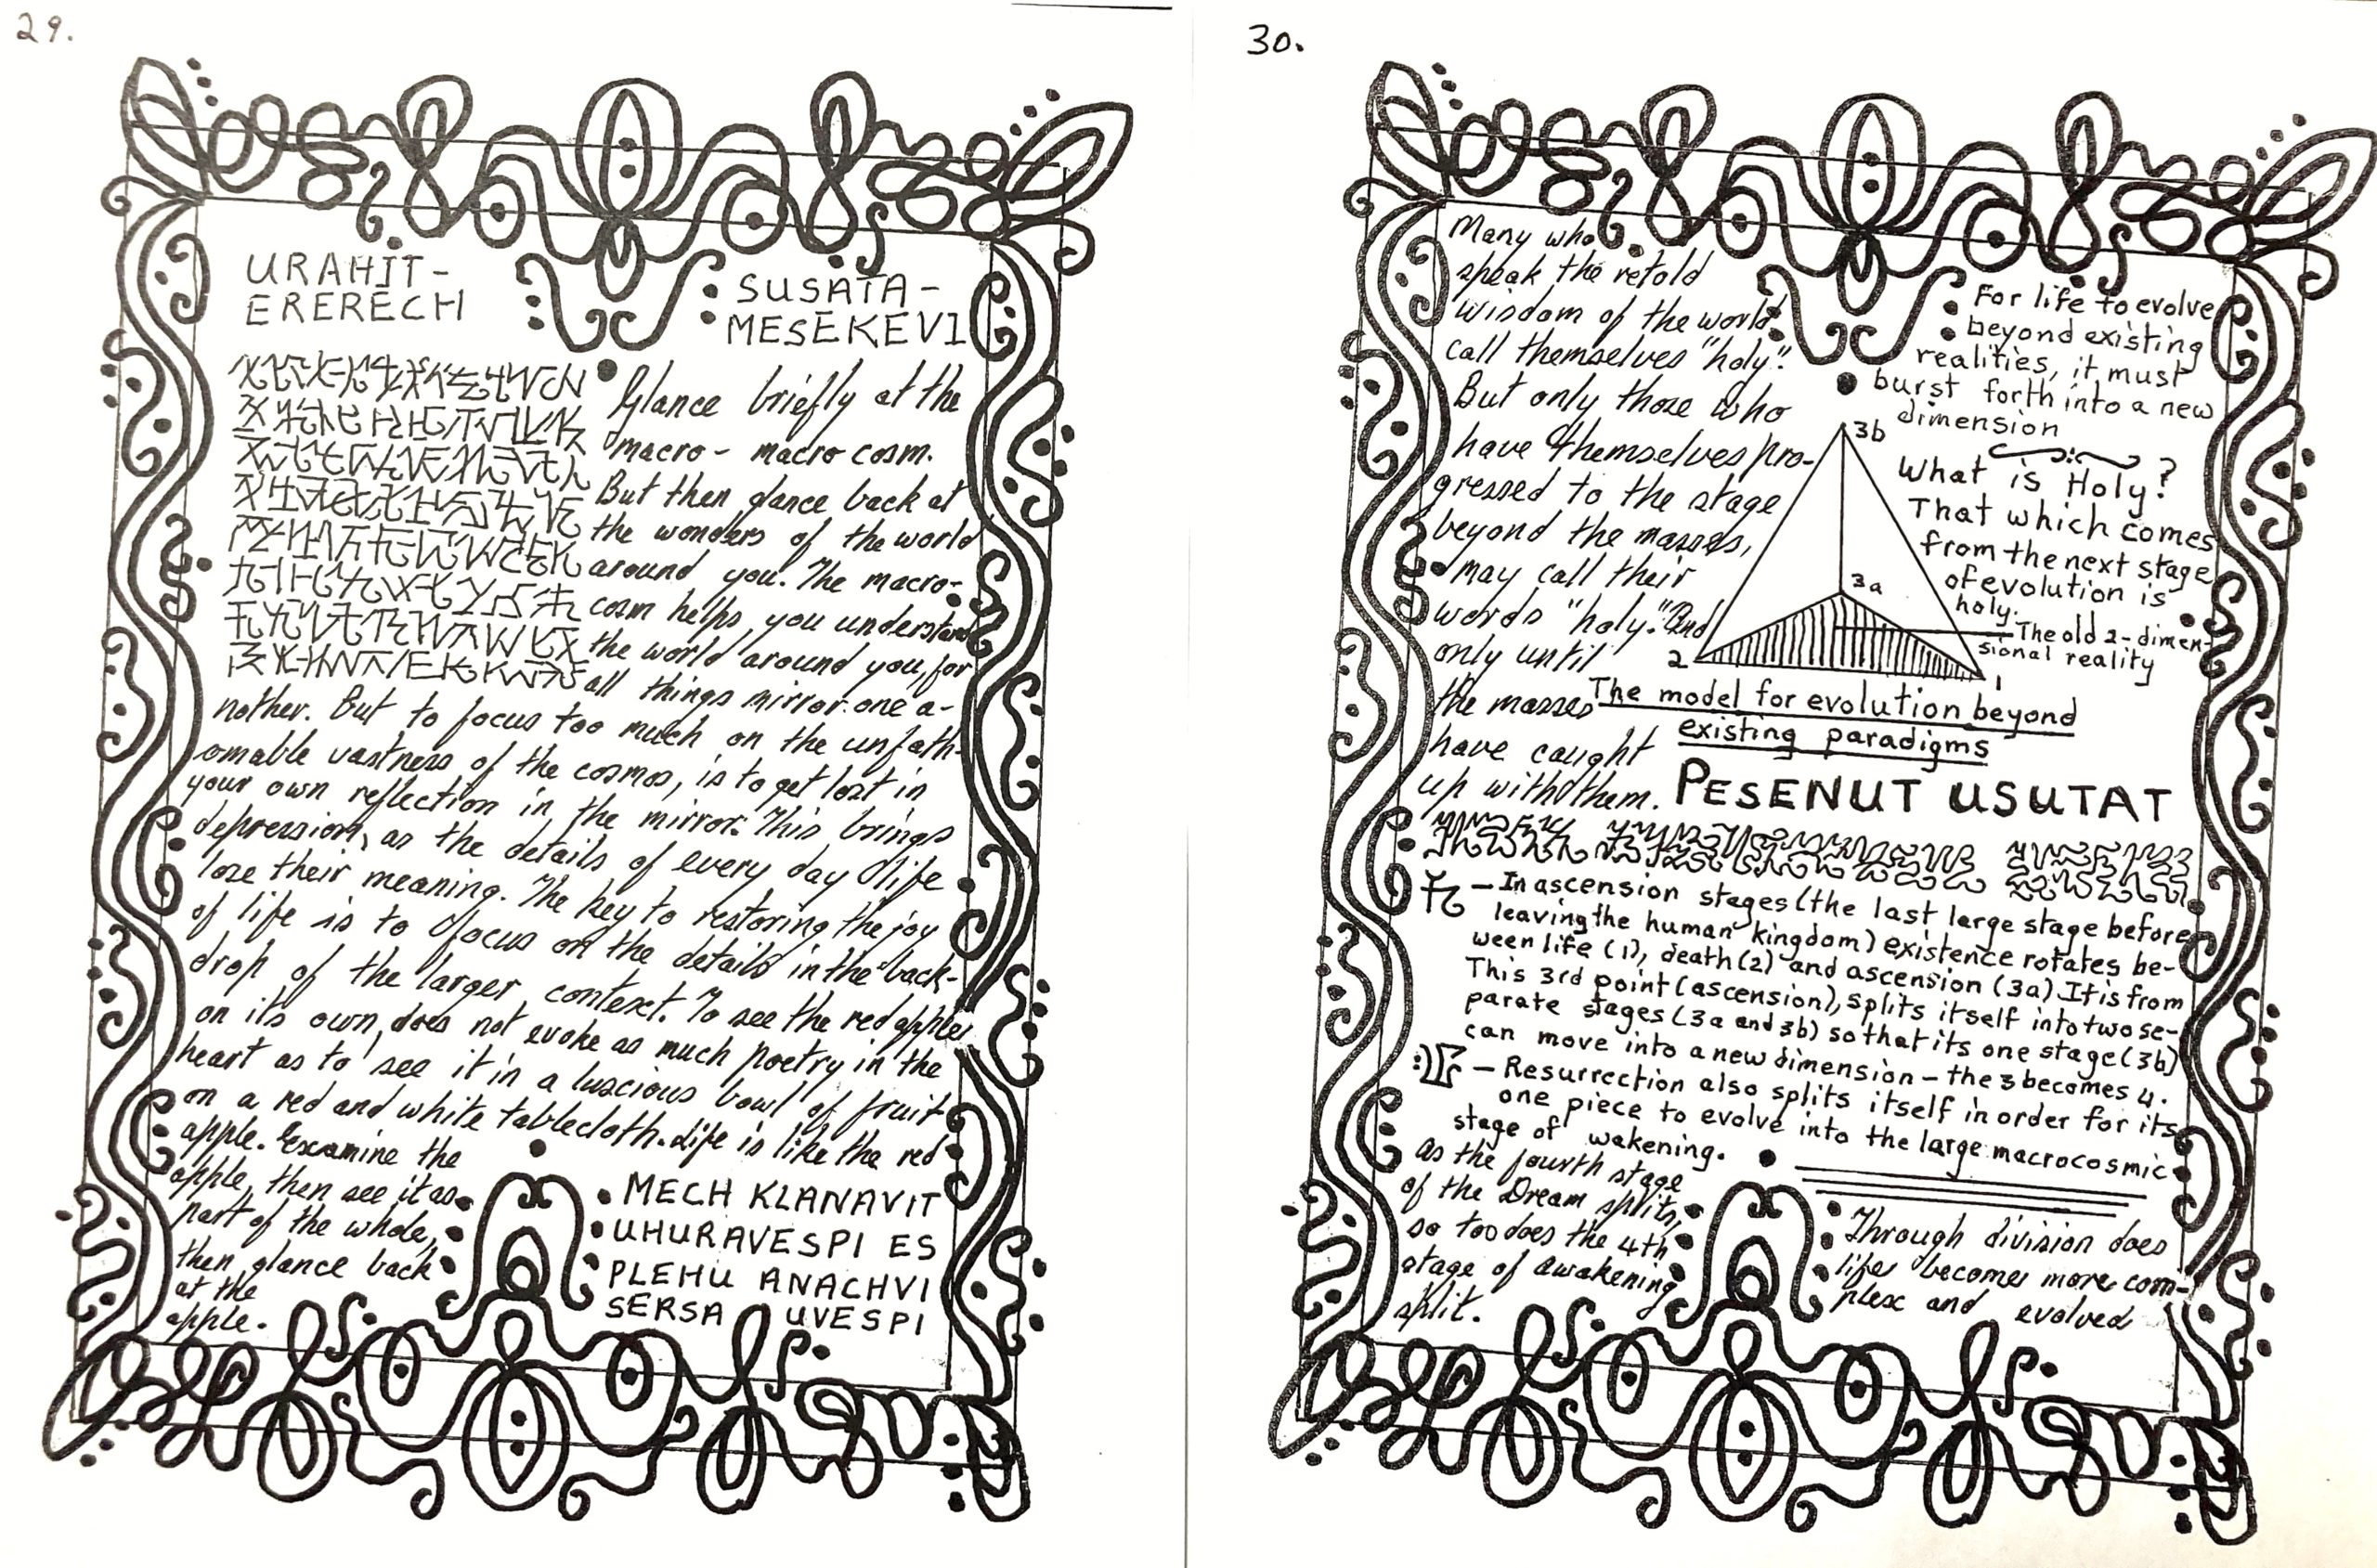 29.
URAHIT-
ERERECH
SUSATA-
MESEKEVI
Glance briefly at the
macro - macro cosm.
But then glance back at
the wonders of the world
around you. The macro-
cosm helps you understand
the world around you, for
all things mirror one a-
nother. But to focus too much on the unfath-
omable vastness of the cosmos, is to get lost in
your own reflection in the mirror. This brings
depression, as the details of every day life
lose their meaning. The key to restoring the joy
of life is to focus on the details in the back-
drop of the larger context. To see the red apple
on its own, does not evoke as much poetry in the
heart as to see it in a luscious bowl of fruit
on a red and white tablecloth. Life is like the red
apple. Examine the
apple, then see it as
part of the whole,
then glance back
at the
apple.
MECH KLANAVIT
UHURAVESPI ES
PLEHU ANACHVI
SERSA UVESPI
30.
Many who
speak the retold
wisdom of the world
call themselves "holy".
But only those who
have themselves pro-
gressed to the stage
beyond the masses,
may call their
words "holy." And
only until
the masses
have caught
up with them.
For life to evolve
beyond existing
realities, it must
burst forth into a new
dimension
3b
What is Holy?
That which comes
from the next stage
of evolution is
holy.
3a
The old 2-dimen-
sional reality
2
1
The model for evolution beyond
existing paradigms
PESENUT USUTAT
– In ascension stages (the last large stage before
leaving the human kingdom) existence rotates be-
ween life (1), death (2) and ascension (3a). It is from
This 3rd point (ascension), splits itself into two se-
parate stages (3a and 3b) so that its one stage (3b)
can move into a new dimension – the 3 becomes 4.
– Resurrection also splits itself in order for its
one piece to evolve into the large macrocosmic
stage of wakening.
As the fourth stage
of the Dream splits,
so too does the 4th
stage of awakening
split.
Through division does
life become more com-
plex and evolved